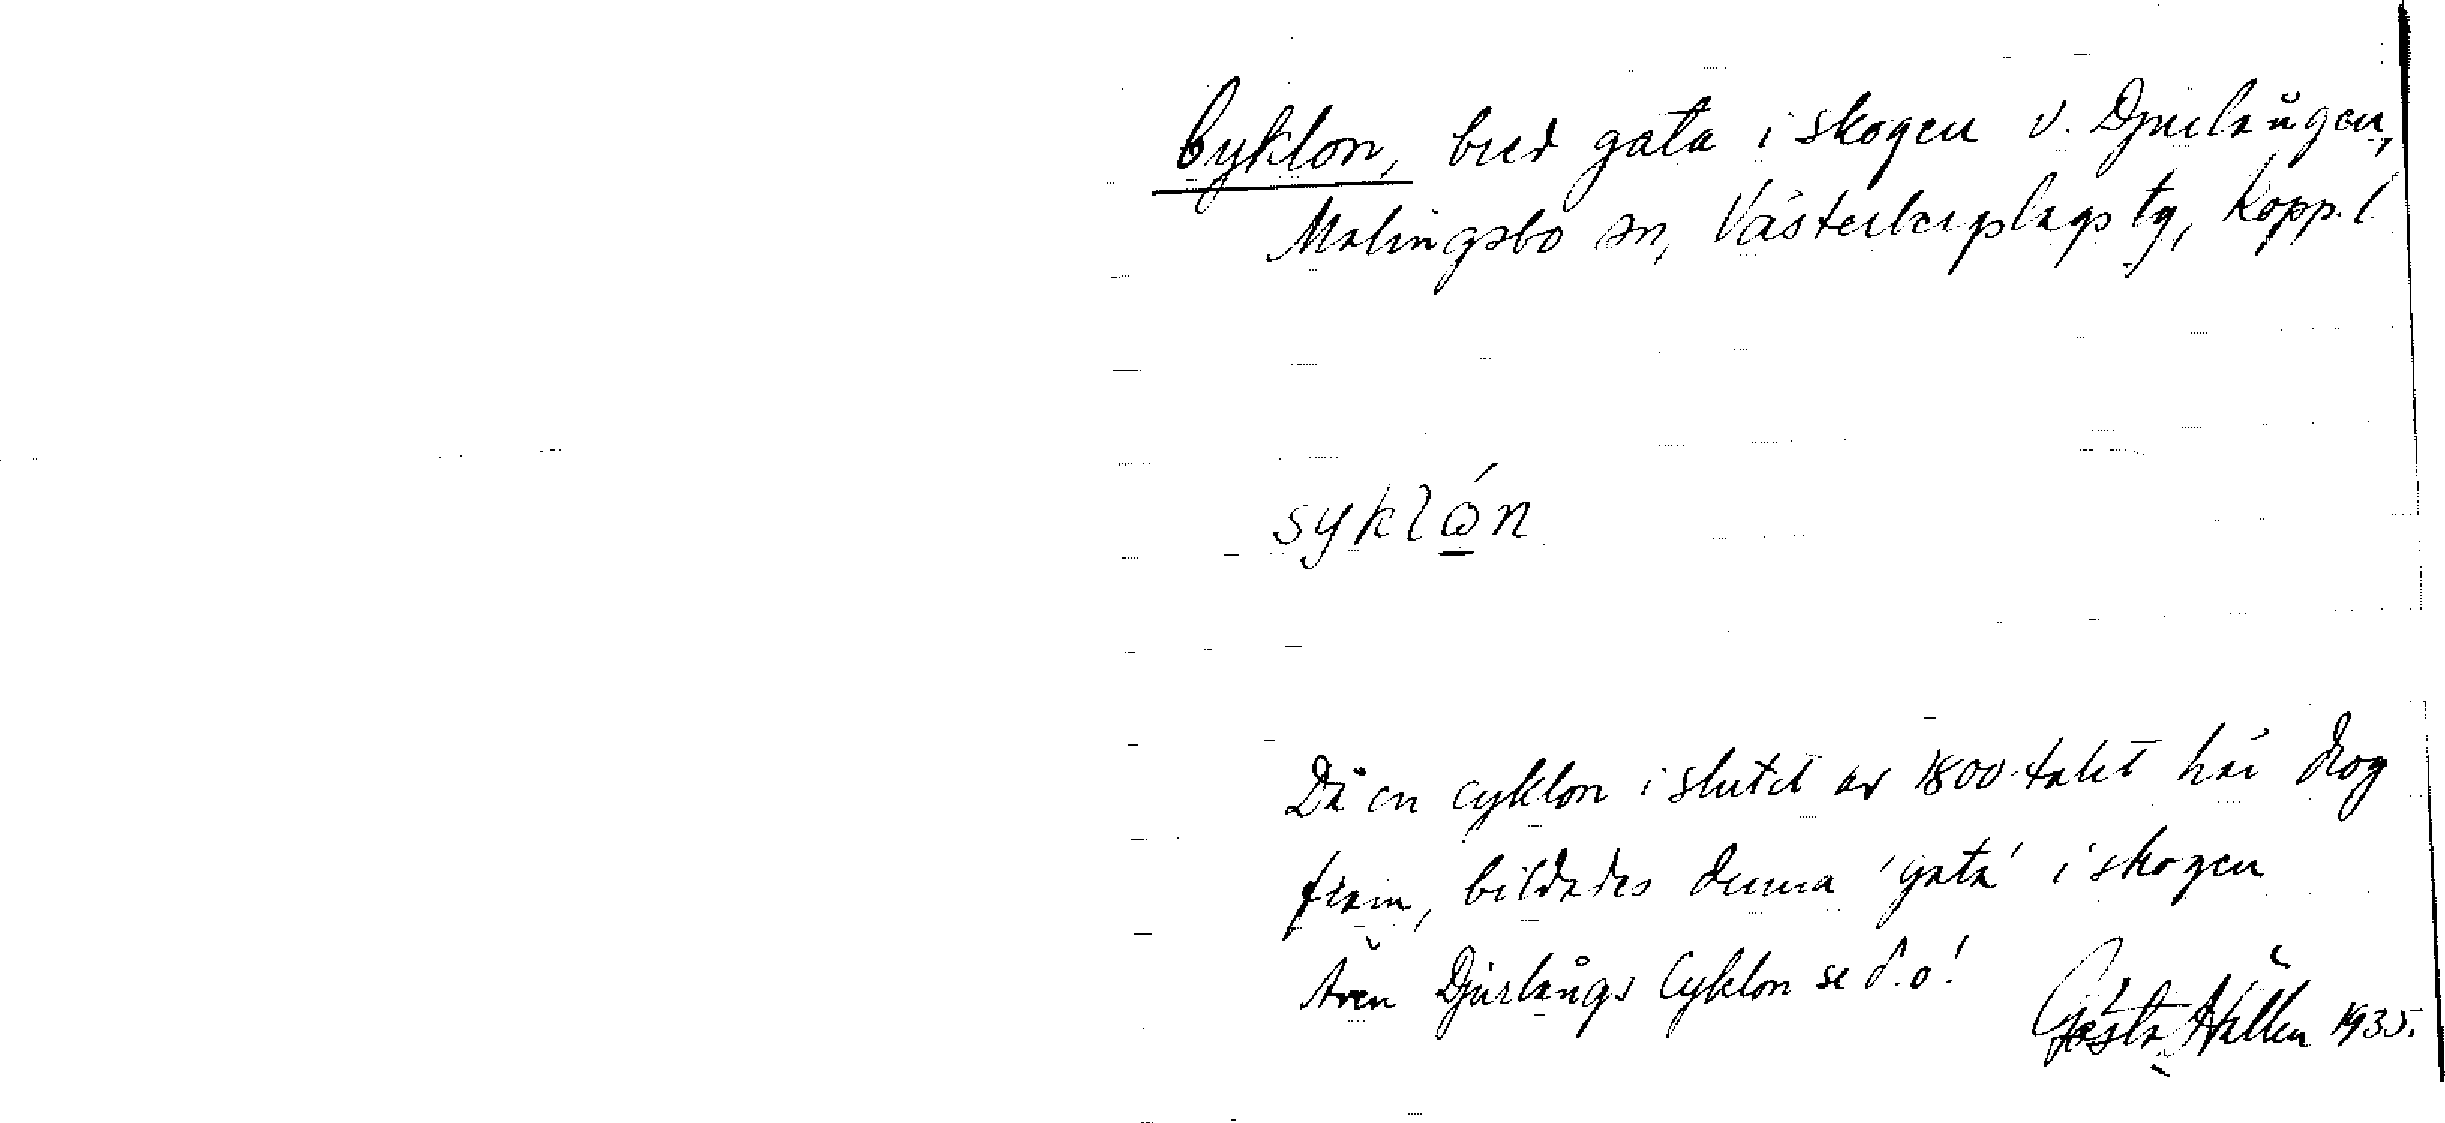 Cyklon, bred gata i skogen v. Djurlången,
Malingsbo sn, Västerbergslags tg, Kopp. l
syklón
Då en cyklon i slutet av 1800-talet här drog
fram, bildades denna 'gata' i skogen
Även Djurlångs Cyklon se d. o!
Gösta Hallén 1935.